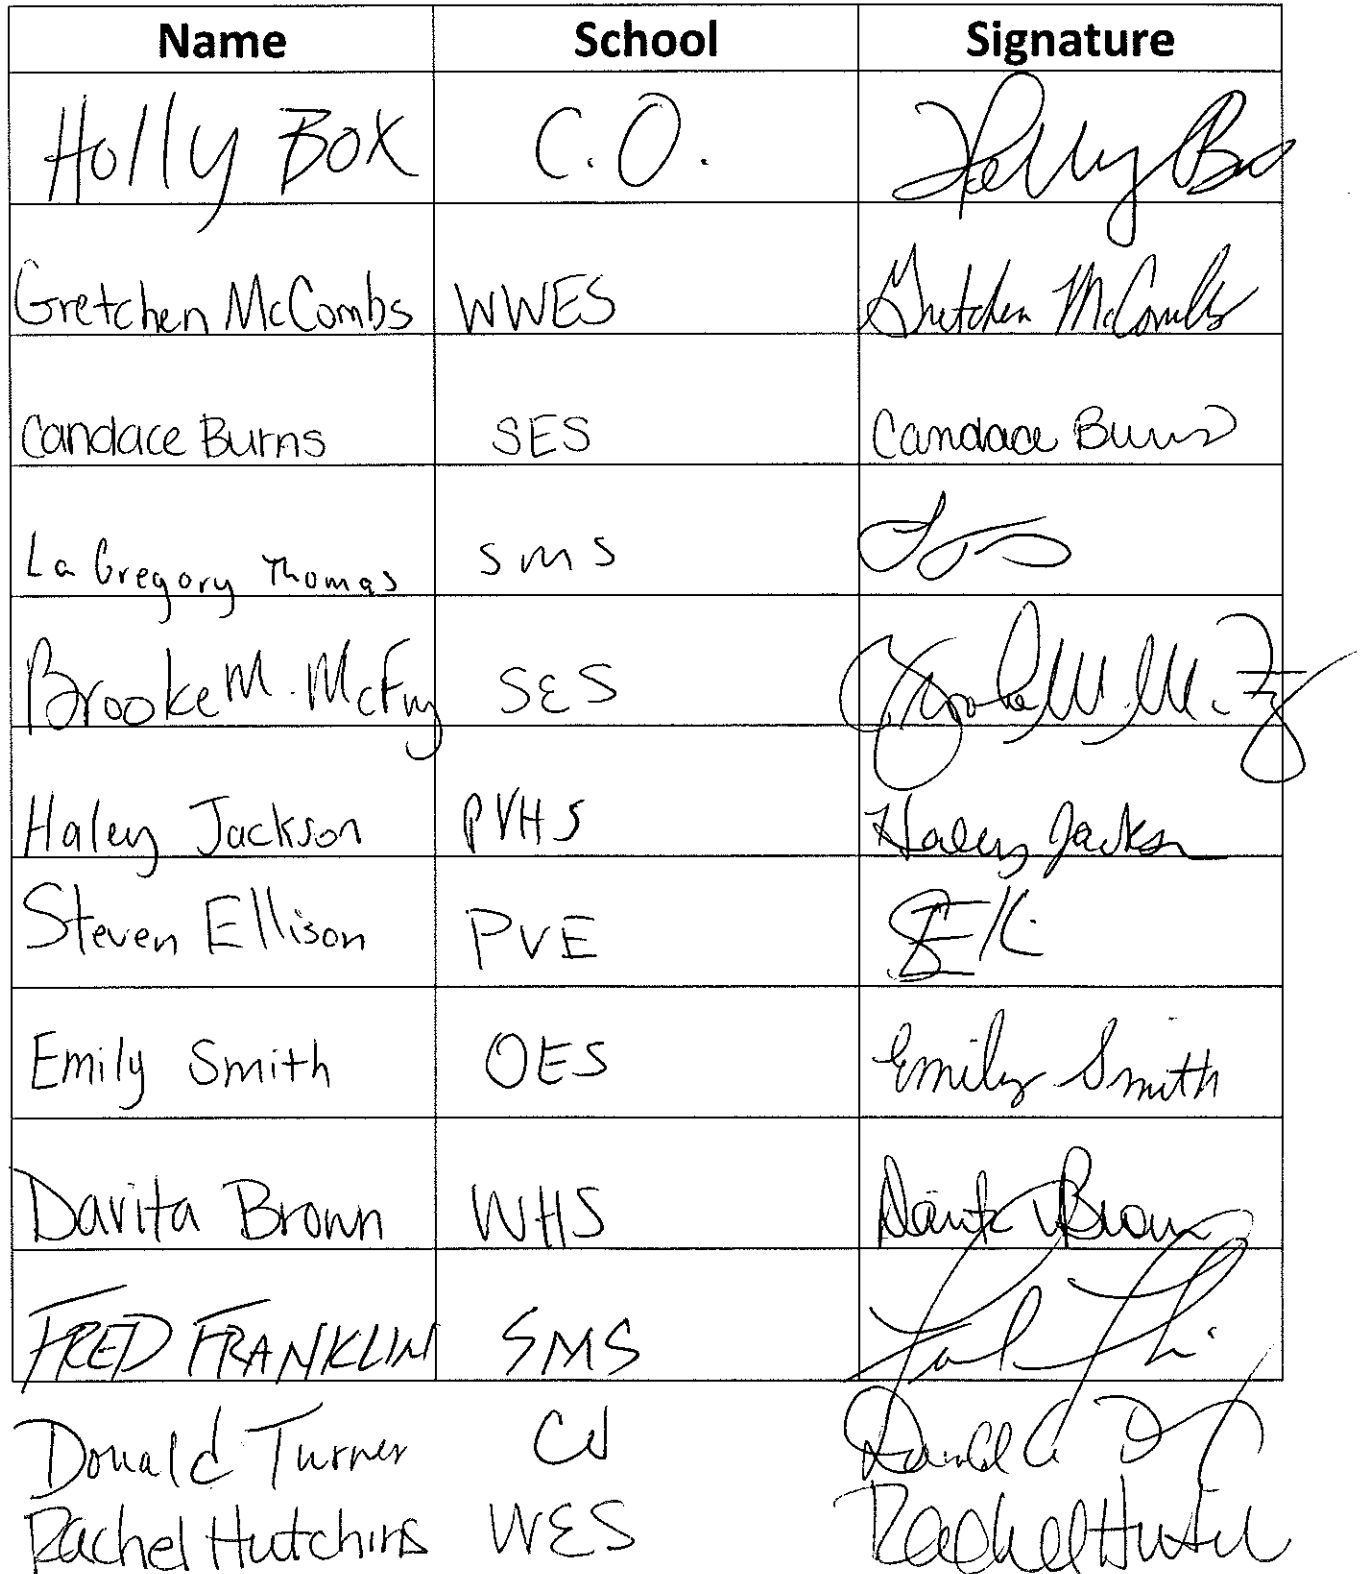 Name School Signature
Holly Box C.O. Holly Box
Gretchen McCombs WWES Gretchen McCombs
Candace Burns SES Candace Burns
La Gregory Thomas SMS
Brooke M. McFry SES Brooke M. McFry
Haley Jackson PVHS Haley Jackson
Steven Ellison PVE
Emily Smith OES Emily Smith
Davita Brown WHS Davita Brown
FRED FRANKLIN SMS
Donald Turner
Rachel Hutchins WES Rachel Hutchins